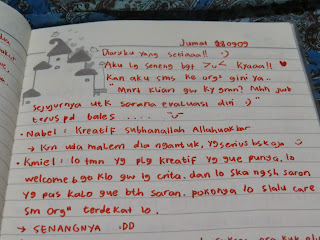 Jumat 180909
Diaryku yang setiaaa!! :)
Aku lg seneng bgt >_< Kyaaa!! ♥
Kan aku sms ke org² gini ya..
" Mnrt klian gw kygmn? Mhn jwb
sejujurnya utk sarana evaluasi diri :)"
terus pd bales ....
• Nabel : Kreatif subhanallah Allahuakbar
→ Krn uda malem dia ngantuk, yg serius bsk aja
• Kmiel : lo tmn yg plg kreatif yg gue punya. lo
welcome bgt klo gw lg crita. dan lo ska ngsh saran
yg pas kalo gue bth saran. pokonya lo slalu care
sm org" terdekat lo.
→ SENANGNYA :DD